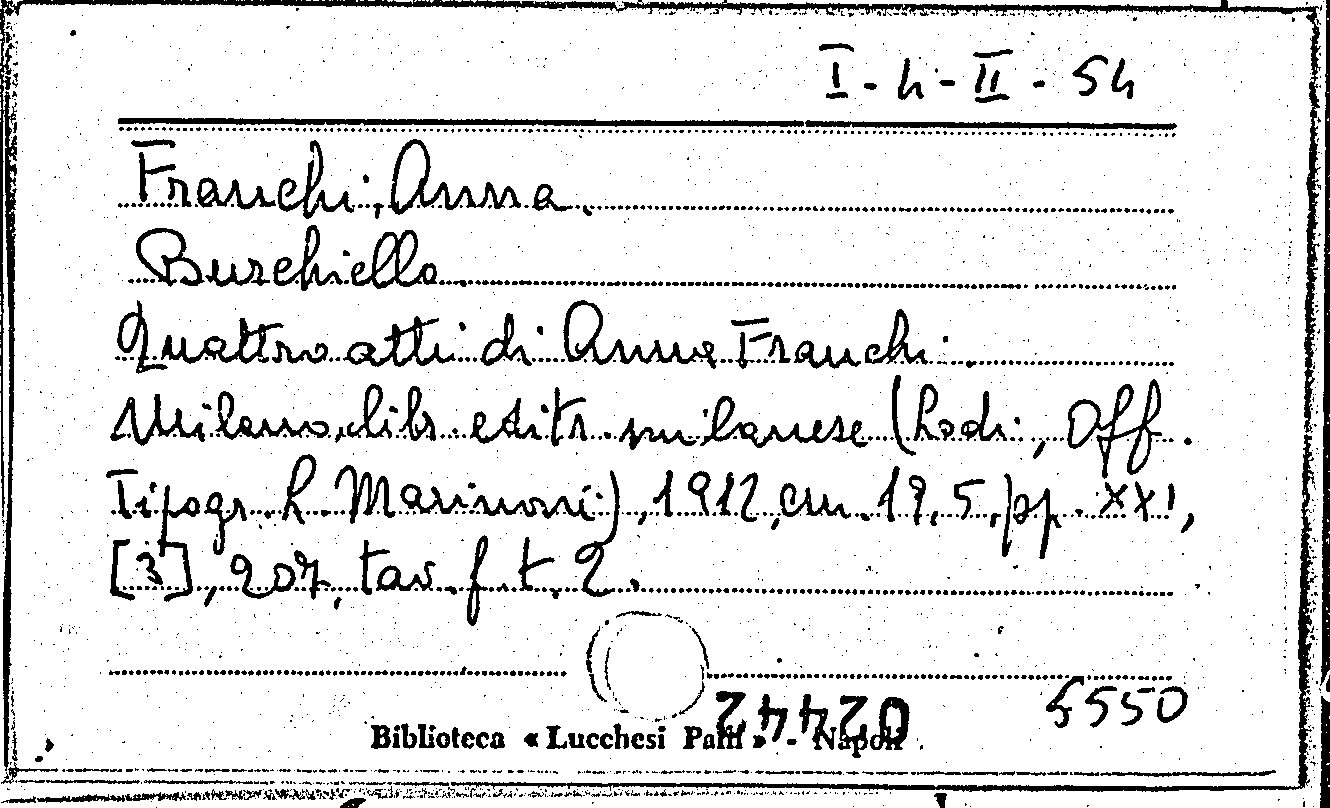 I - 4 - II - 54
Franchi, Anna.
Burchiello.
Quattro atti di Anna Franchi.
Milano, libr. editr. milanese (Lodi, Off.
Tipogr. L. Marinoni), 1912, cm. 19,5, pp. XXI,
[3], 207, tav. f. t. 2.
5550
02442
Biblioteca « Lucchesi Palli » - Napoli